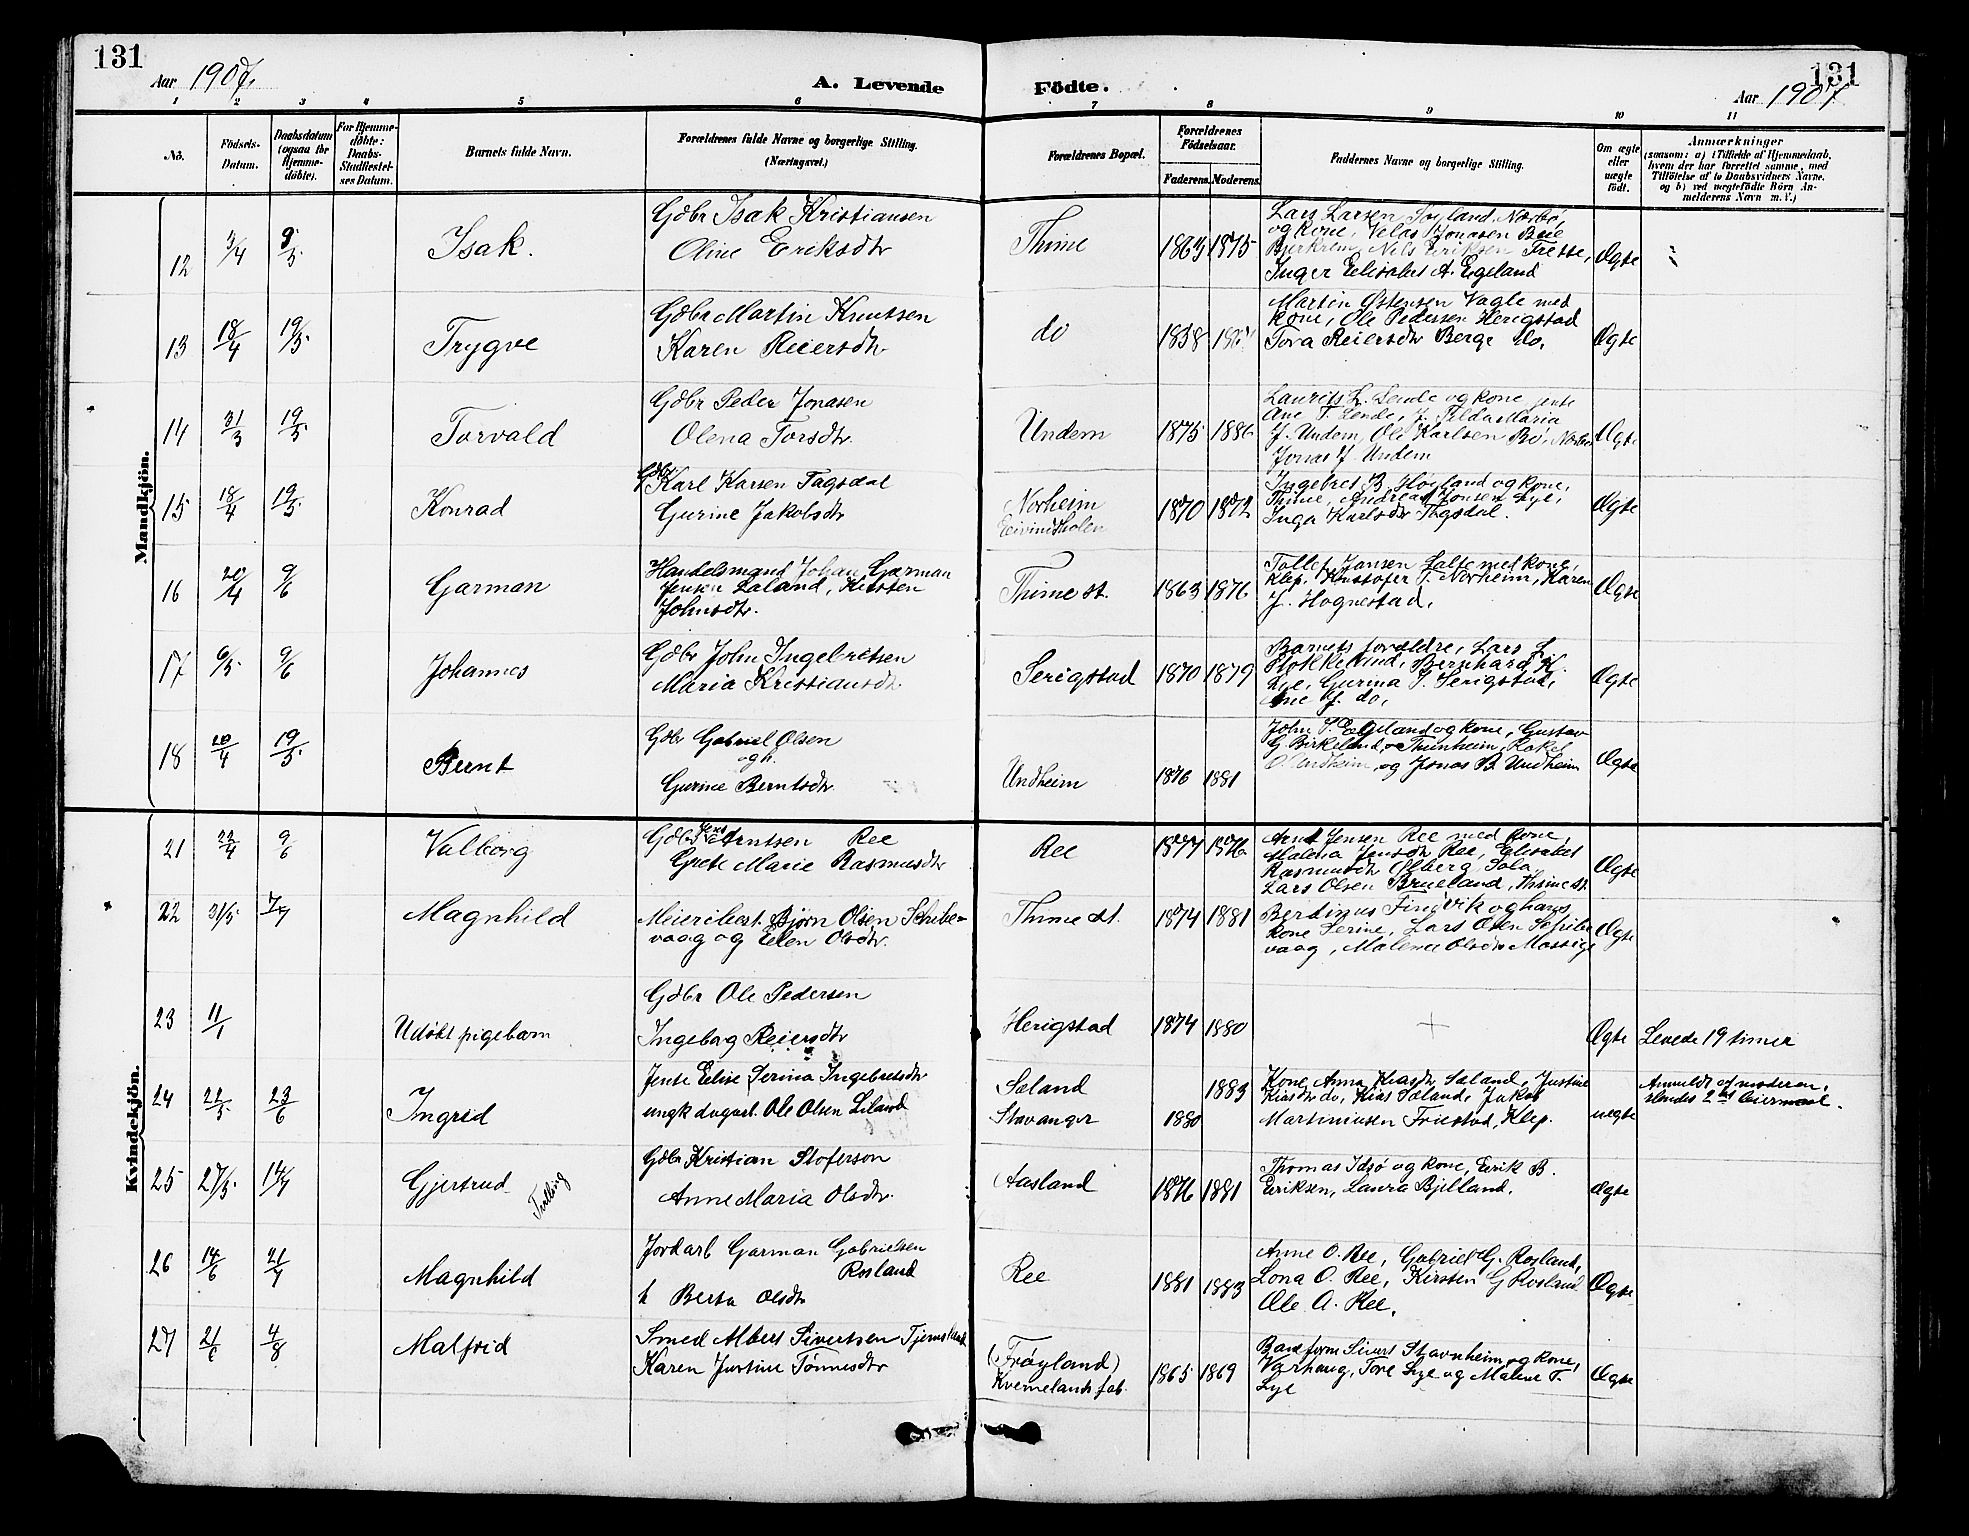 131
Aar 1907.
A. Levende
Födte.
131
Aar 1907
1 2 3 4 5 6 7 8 9 10 11
No.
Födsels-
Datum.
Daabsdatum
(ogsaa for
Hjemme-
döbte).
For Hjemme-
döbte:
Daabs-
Stadfæstel-
ses Datum.
Barnets fulde Navn.
Forældrenes fulde Navne og borgerlige Stilling.
(Næringsvei.)
Forældrenes Bopæl.
Forældrenes
Födselsaar.
Faderens. Moderens.
Faddernes Navne og borgerlige Stilling.
Om ægte
eller
uægte
født.
Anmærkninger
(saasom: a) i Tilfælde af Hjemmedaab,
hvem der har forrettet samme, med
Tilföielse af to Daabsvidners Navne,
og b) ved uægtefödte Börn An-
melderens Navn m. V.)
Mandkjön.
12 3/4 9/5 Isak.
Gdbr Isak Kristiansen
Oline Eriksdtr
Thime 1863 1875
Lars Larsen Norbø,
og kone, Jonasen Bue
Bjerkrem, Nils Eriksen Tresse,
Inger Elisabet A. Egeland
Ægte
13 18/4 19/5. Trygve
Gdbr Martin Knutsen
Karen Reiersdtr
do 1858
Martin Østensen Vagle med
kone, Ole Pedersen Herigstad
Tora Reiersdtr Berge do.
Ægte
14 31/3 19/5. Torvald
Gdbr Peder Jonasen
Olena Torsdtr.
Undem 1875 1886
Laurits L. Lende og kone, jente
Ane T. Lende, J. Maria
J. Undem, Ole Karlsen Bø, Nærbø
Jonas J. Undem
Ægte
15 18/4 19/5. Konrad
Gdbr Karl Karsen Fagsdal
Gurine Jakobsdtr
Norheim
Eivindsholen
1870 1872
Ingebret B. Høiland og kone,
Thime, Andreas Jonsen Lye,
Inga Karlsdtr Fagsdal.
Ægte
16 20/4 9/6 Garman
Handelsmand Johan Garman
Jensen Laland, Kirsten
Johnsdtr.
Thime st. 1863 1876
Tollef Jansen Salte med kone,
Klep, Kristofer T. Norheim, Karen
J. Hognestad.
Ægte
17 6/5. 9/6 Johannes
Gdbr John Ingebretsen
Maria Kristiansdtr
Serigstad 1870 1879
Barnets forældre, Lars L
Stokkelind, Bernhard K.
Lye, Gurina J. Serigstad,
Ane J. do.
Ægte
18 20/4 19/5. Bernt
Gdbr Gabriel Olsen
og h.
Gurine Berntsdtr.
Undheim 1876 1881
John P. Egeland og kone, Gustav
G. Birkeland, Thunheim, Rakel
O. Undheim, og Jonas B. Undheim
Ægte
Kvindekjön.
21 22/4 9/6 Valborg
Gdbr Jens Arntsen Ree
Grete Marie Rasmusdtr
Ree 1877 1876
Arnt Jensen Ree med kone,
Malena Jensdtr Ree, Elisabet
Rasmusdtr Østberg, Sola
Lars Olsen Brueland, Thime st.
Ægte
22 31/5. 7/7 Magnhild
Meieribest. Bjørn Olsen Skibe-
vaag og Elen Olsdtr.
Thime st. 1874 1881
Berdinus Findvik og hans
kone Serine, Lars Olsen Skibe
vaag, Malena Olsdtr Mossige
Ægte
23 11/1 Udøbt pigebarn
Gdbr Ole Pedersen
Ingeborg Reiersdtr
Herigstad 1874 1880
+
Ægte Levede 19 timer
24 22/5. 23/6 Ingrid
Jente Elise Serina Ingebretsdtr
ungk dagarb. Ole Olsen Liland
Sæland 1883
Stavanger 1880
Kone Anna Kiasdtr Sæland, Justine
Kiasdtr do, Kias Sæland, Jakob
Martiniusen Friestad, Klep.
uægte
Anmeldt af moderen,
2det leiermaal.
25 27/5. 14/7 Gjertrud
Tvilling
Gdbr Kristian Stoferson
Anne Maria Olsdtr.
Aasland 1876 1881
Thomas Idsø og kone, Eirik B.
Eriksen, Laura Bjelland.
Ægte
26 14/6 21/7 Magnhild
Jordarb Garman Gabrielsen
Rosland
h Berta Olsdtr
Ree 1881 1883
Anne O. Ree, Gabriel G. Rosland,
Lona O. Ree, Kirsten G Rosland
Ole A. Ree.
Ægte
27 21/6 4/8 Malfrid
Smed Albert Sivertsen Tjemsland
Karen Justine Tønnesdtr
(Frøyland)
Kvernelands fab.
1865 1869
Baneform Sivert Stavnheim og kone,
Varhaug, Tore Lye og Malene T.
Lye
Ægte